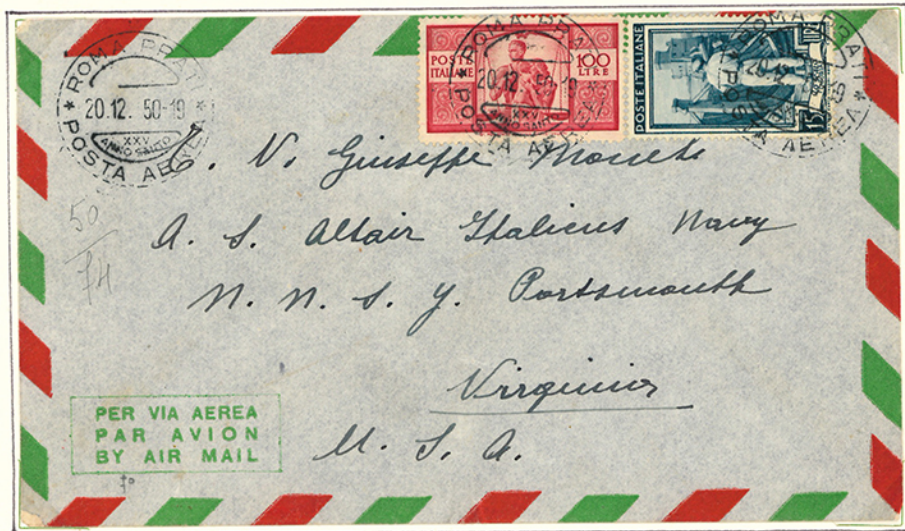 ROMA PRATI
20.12.50-19
XXV
ANNO SANTO
POSTA AEREA
POSTE
ITALIANE
100
LIRE
ROMA PRATI
20.12.50-19
XXV
ANNO SANTO
POSTA AEREA
POSTE ITALIANE
LIRE
15
ROMA PRATI
20.12
POSTA AEREA
S. V. Giuseppe
A. S. Altair Italicus Navy
N. N. S. Y. Portsmouth
Virginia
U. S. A.
50
PER VIA AEREA
PAR AVION
BY AIR MAIL